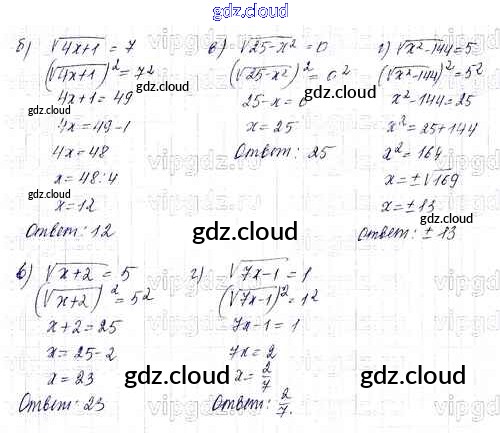 gdz.cloud
б) √(4x+1) = 7
(√(4x+1))² = 7²
4x+1 = 49
4x = 49-1
4x = 48
x = 48:4
x = 12
Ответ: 12
в) √(25-x²) = 0
(√(25-x²))² = 0²
25-x = 0
x = 25
Ответ: 25
г) √(x²-144) = 5
(√(x²-144))² = 5²
x²-144 = 25
x² = 25+144
x² = 164
x = ±√169
x = ±13
Ответ: ±13
в) √(x+2) = 5
(√(x+2))² = 5²
x+2 = 25
x = 25-2
x = 23
Ответ: 23
г) √(7x-1) = 1
(√(7x-1))² = 1²
7x-1 = 1
7x = 2
x = 2/7
Ответ: 2/7.
gdz.cloud
gdz.cloud
gdz.cloud
gdz.cloud
gdz.cloud
gdz.cloud
gdz.cloud
gdz.cloud
gdz.cloud